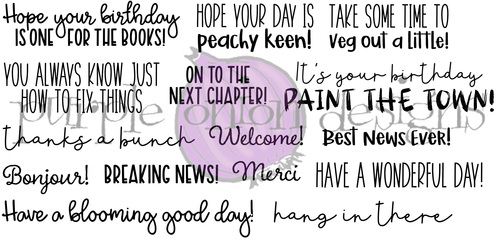 Hope your birthday
IS ONE FOR THE BOOKS!
HOPE YOUR DAY IS
peachy keen!
TAKE SOME TIME TO
veg out a little!
YOU ALWAYS KNOW JUST
HOW TO FIX THINGS
ON TO THE
NEXT CHAPTER!
It's your birthday
PAINT THE TOWN!
purple onion designs
thanks a bunch
Welcome!
Best News Ever!
Bonjour!
BREAKING NEWS!
Merci
HAVE A WONDERFUL DAY!
Have a blooming good day!
hang in there